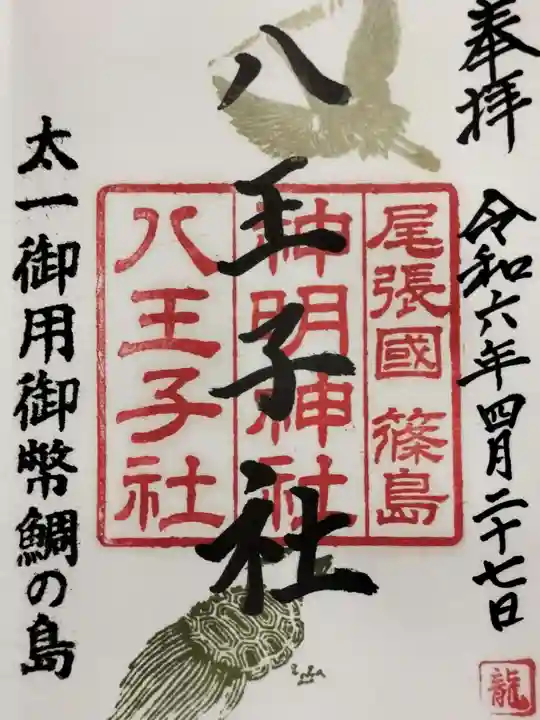 奉拝
令和六年四月二十七日
龍
八王子社
尾張國 篠島
神明神社
八王子社
太一御用御幣鯛の島